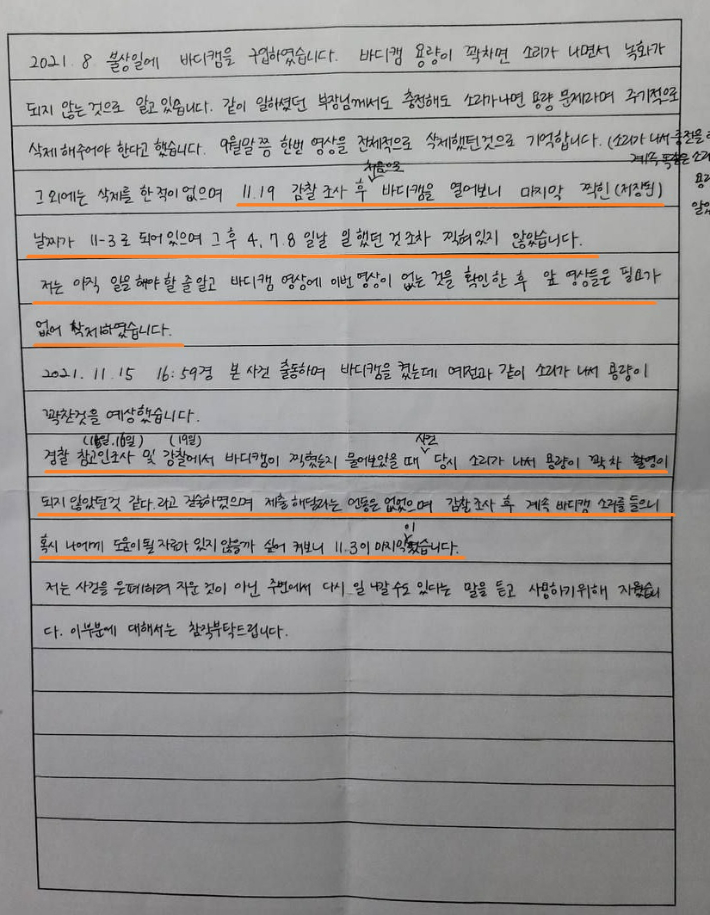 2021. 8 불상일에 바디캠을 구입하였습니다. 바디캠 용량이 꽉차면 소리가 나면서 녹화가
되지 않는 것으로 알고 있습니다. 같이 일하셨던 부장님께서도 충전해도 소리가나면 용량 문제라며 주기적으로
삭제 해주어야 한다고 했습니다. 9월말 쯤 한번 영상을 전체적으로 삭제했던것으로 기억합니다. (소리가 나서 충전을
계속 소리
그 외에는 삭제를 한 적이 없으며 11.19 감찰 조사 후 처음으로 바디캠을 열어보니 마지막 찍힌 (저장된)
용량
날짜가 11-3로 되어 있으며 그 후 4, 7. 8 일날 일했던 것 조차 찍혀있지 않았습니다.
저는 아직 일을 해야 할 줄 알고 바디캠 영상에 이번 영상이 없는 것을 확인한 후 앞 영상들은 필요가
없어 삭제하였습니다.
2021. 11. 15 16:59경 본 사건 출동하며 바디캠을 켰는데 예전과 같이 소리가 나서 용량이
꽉찬것을 예상했습니다.
(19일)
경찰 참고인조사 및 감찰에서 바디캠이 찍혔는지 물어보았을 때 사건 당시 소리가 나서 용량이 꽉 차 촬영이
되지 않았던것 같다.라고 진술하였으며 제출해달라는 언동은 없었으며 감찰조사 후 계속 바디캠 소리를 들으니
혹시 나에게 도움이될 자료가 있지 않을까 싶어 켜보니 11.3이 마지막이었습니다.
저는 사건을 은폐하려 지운 것이 아닌 주변에서 다시 일 나갈 수도 있다는 말을 듣고 사용하기위해 지웠습니
다. 이부분에 대해서는 참작부탁드립니다.